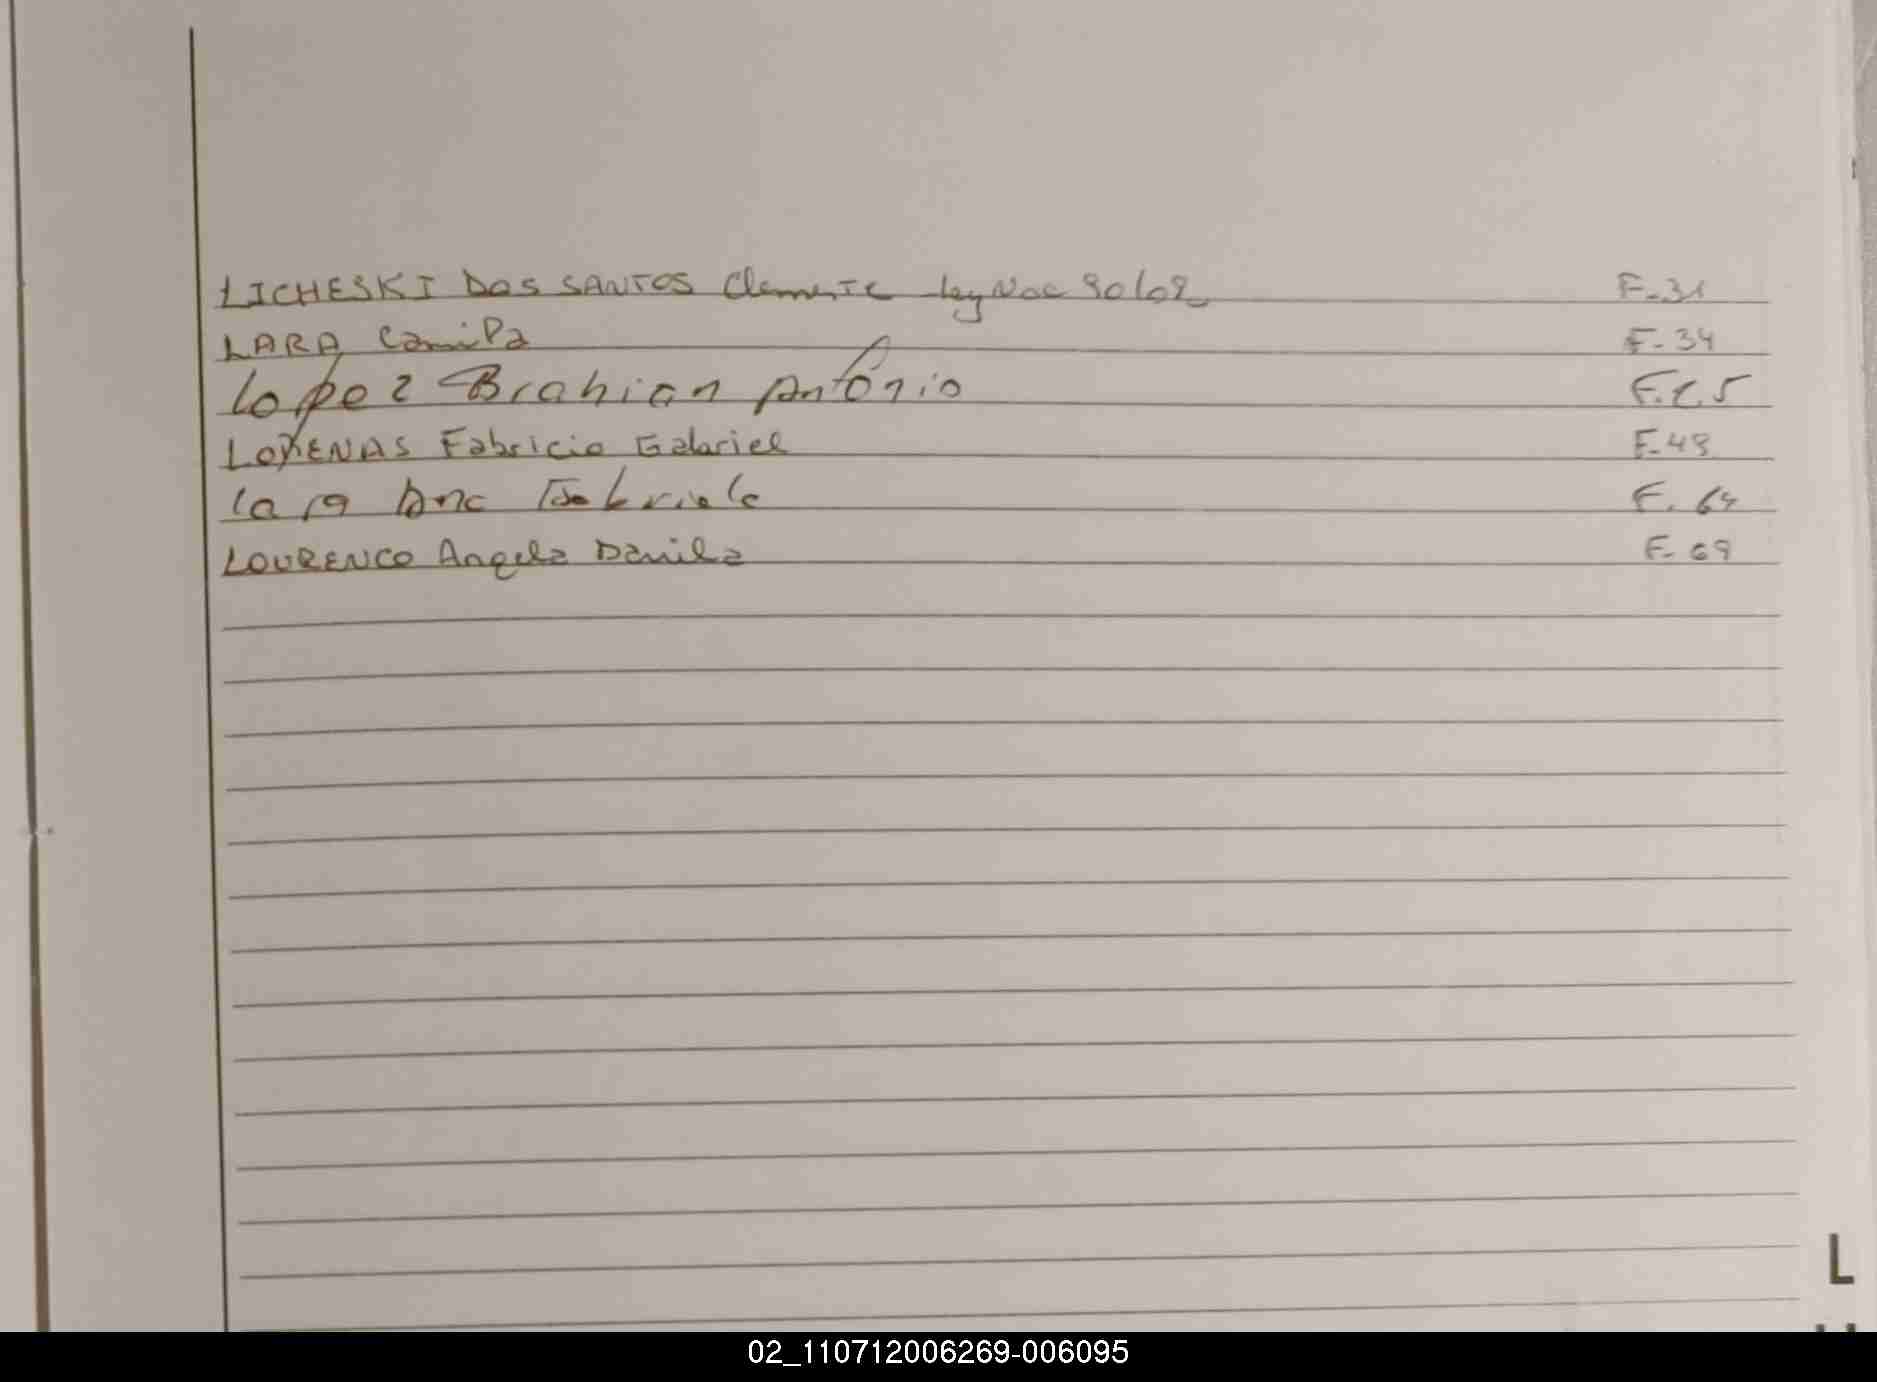 LICHESKI DOS SANTOS Clemente ley Nac
F-31
LARA Camila
F-34
Lopez Brahian Antonio
LOXENAS Fabricio Gabriel
F-48
Lara Ana Gabriela
F. 64
LOURENCO Angela Danila
F- 69
L
02_110712006269-006095